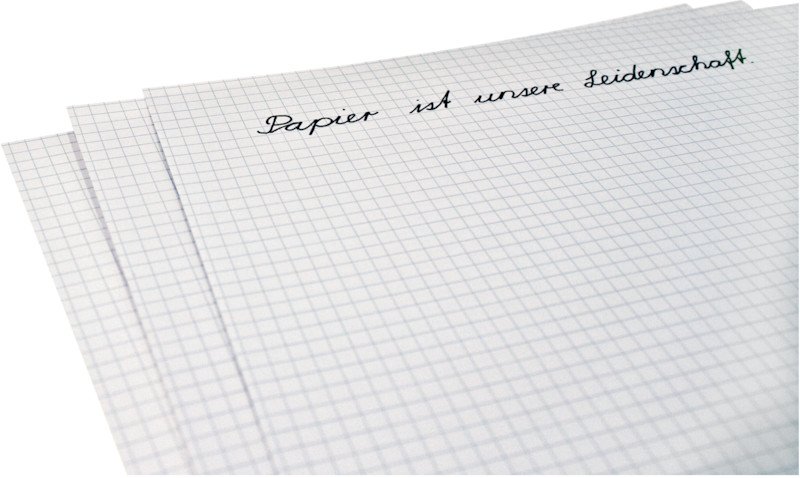 Papier ist unsere Leidenschaft.